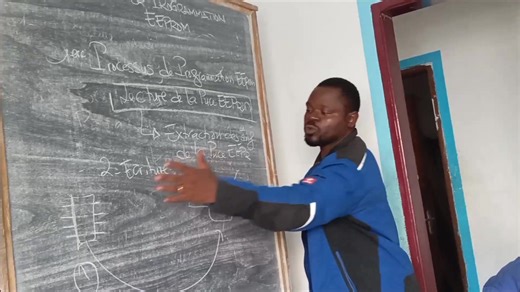 PROGRAMMATION
EEPROM
Processus de Programmation EEP
1 Lecture de la Puce EEPROM
↳ Extraction des
de la Puce EEPR
2- Ecriture